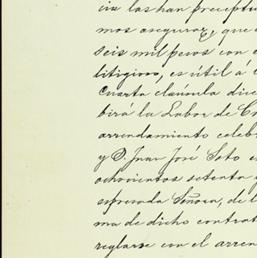 cia las han preceptu
mos asegurar, que e
seis mil pesos con e
litigioso, es útil á
cuarta clausula dice
birá la Labor de Cr
arrendamiento celeb
y D. Juan José Soto e
ochocientos setenta
espresada Señora, de l
ma de dicho contrat
reglarse con el arren